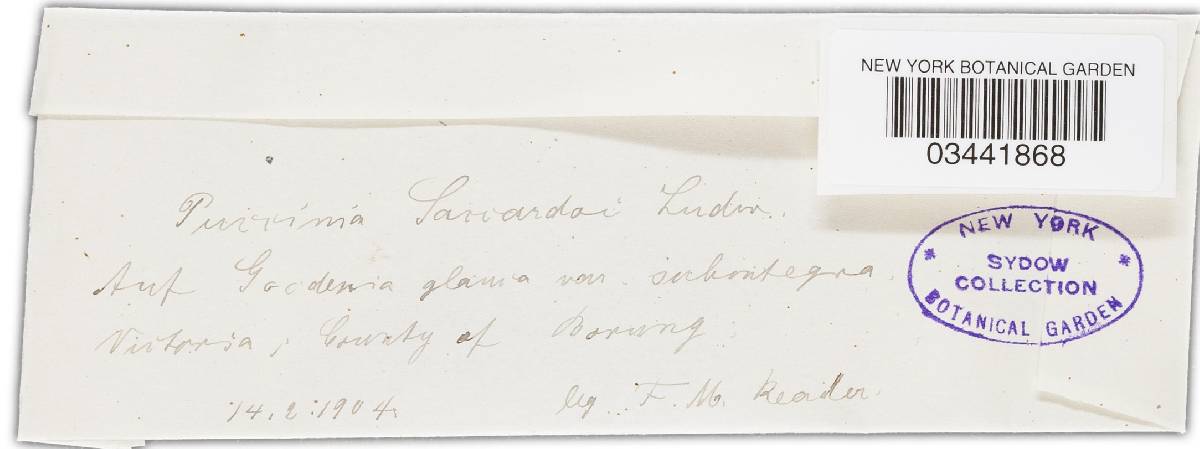 NEW YORK BOTANICAL GARDEN
03441868
Puccinia Saccardoi Ludw.
Auf Goodenia glauca var. subintegra.
Victoria, County of Borung.
14.2.1904.
leg. F. M. Reader.
NEW YORK
SYDOW
COLLECTION
BOTANICAL GARDEN